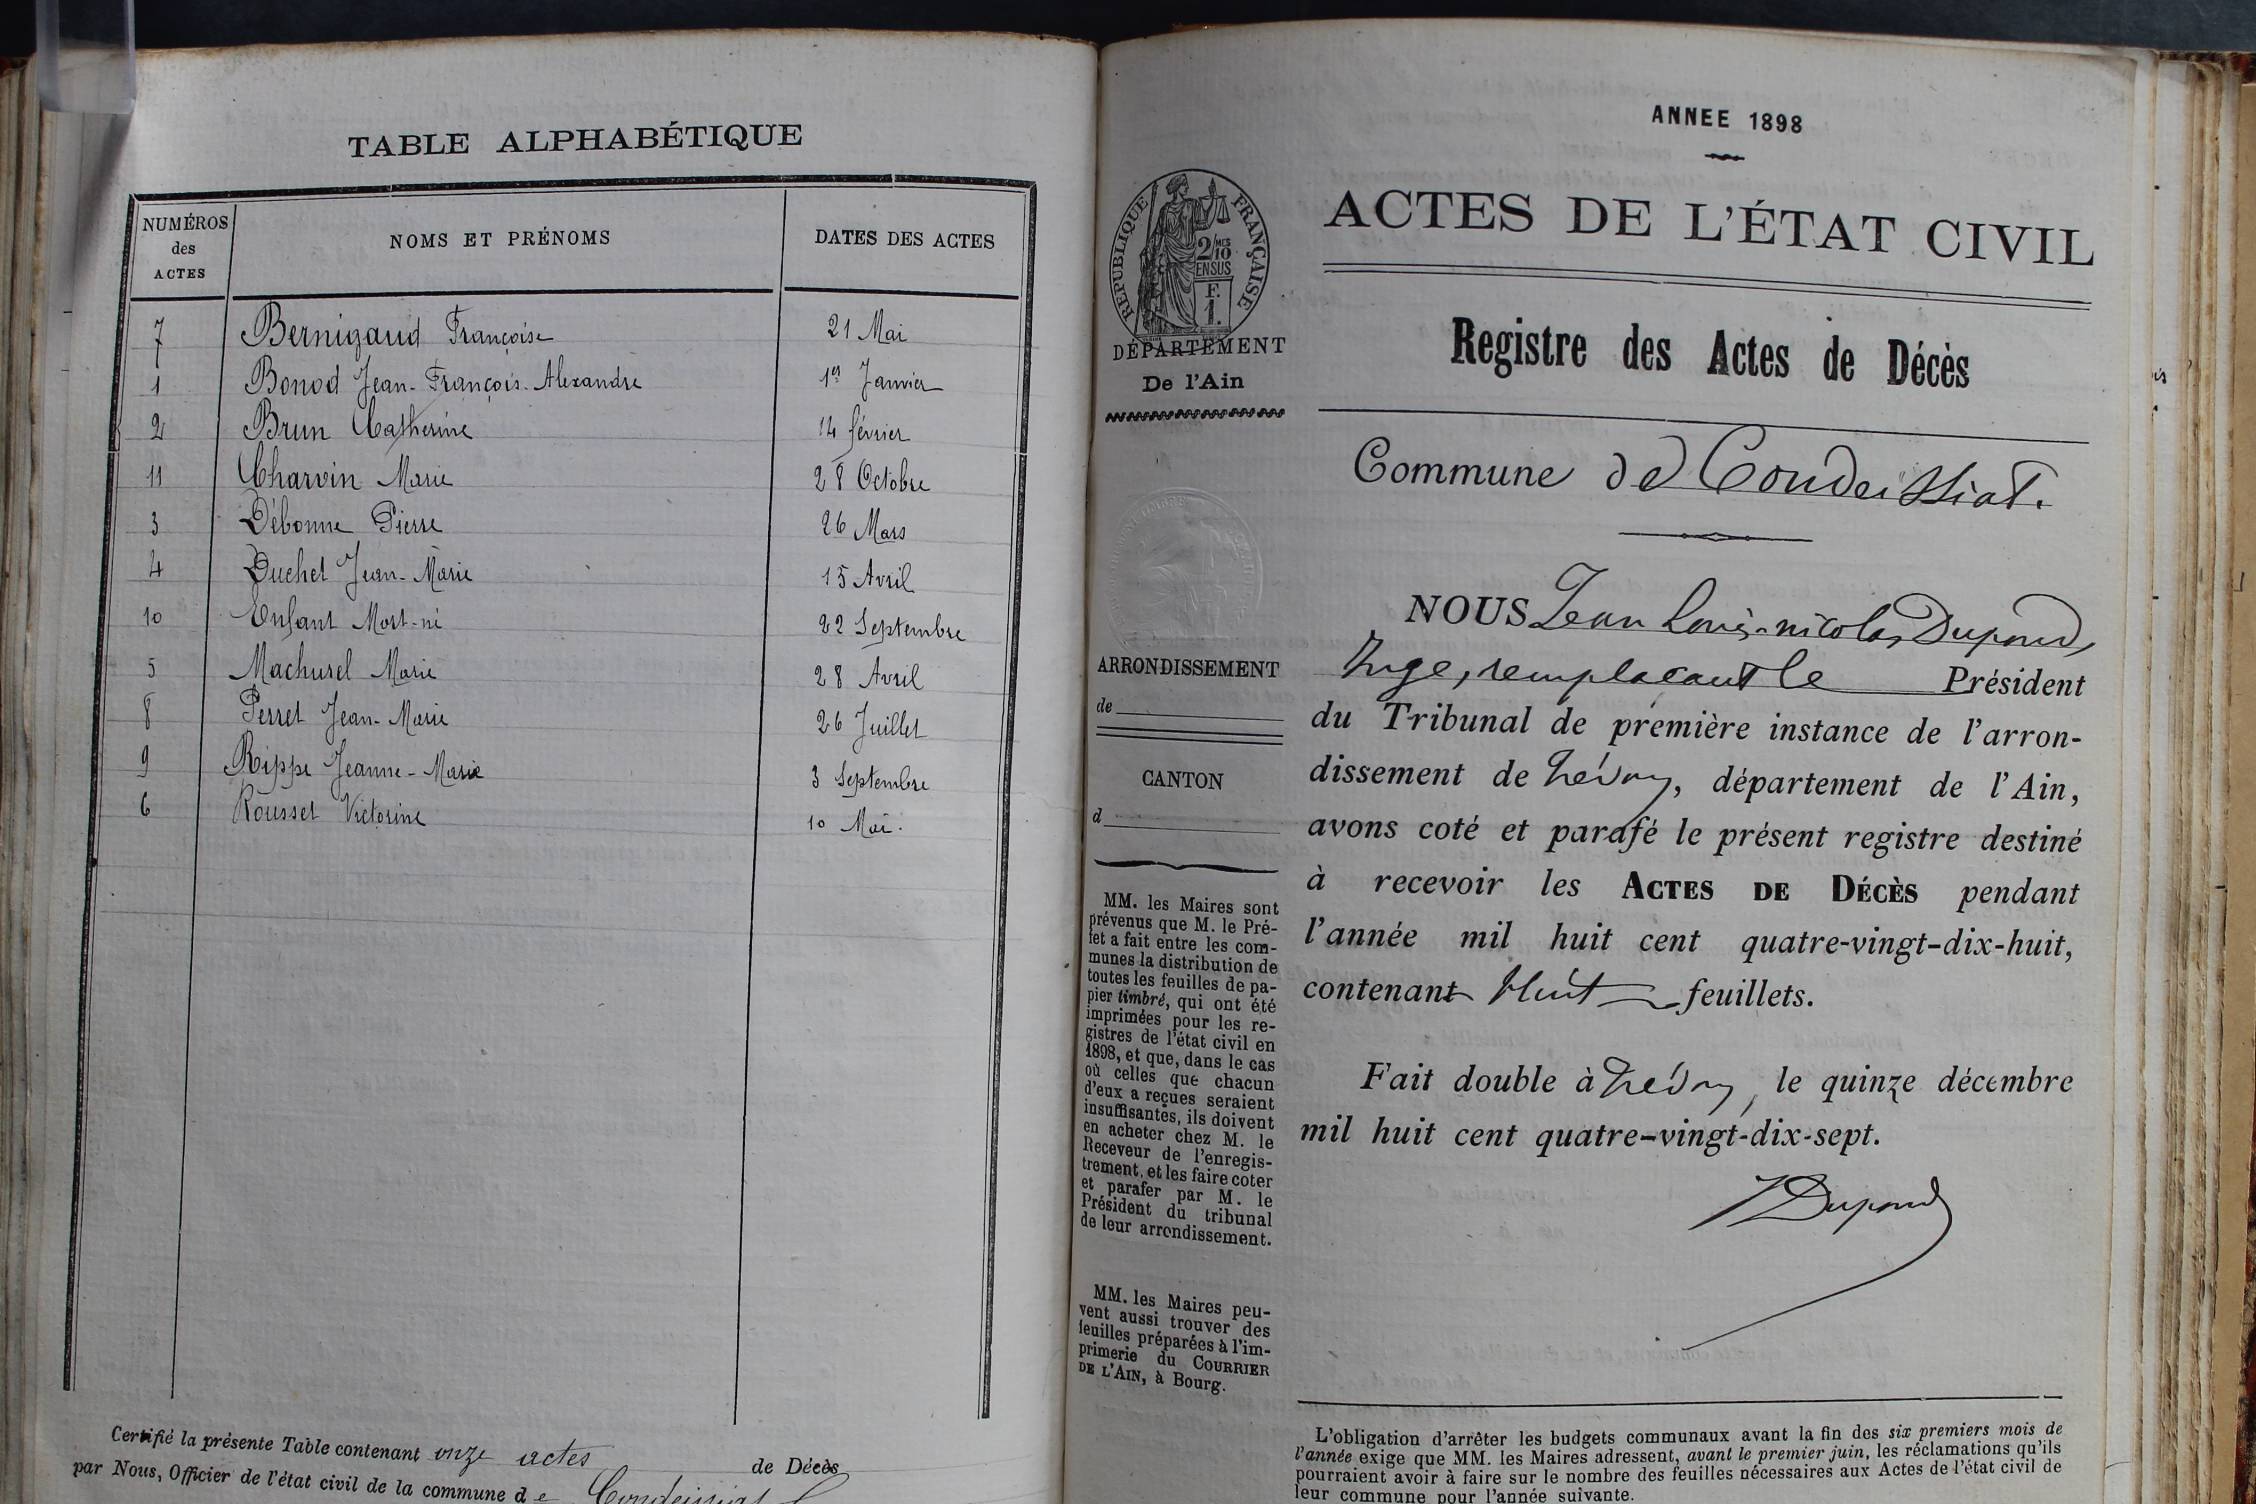 TABLE ALPHABÉTIQUE
NUMÉROS des ACTES NOMS ET PRÉNOMS DATES DES ACTES
7 Bernigaud Françoise 21 Mai
1 Bonod Jean-François-Alexandre 1er Janvier
2 Brun Catherine 14 février
11 Charvin Marie 28 Octobre
3 Débonne Pierre 26 Mars
4 Duchet Jean-Marie 15 Avril
10 Enfant Mort-né 22 Septembre
5 Machurel Marie 28 Avril
8 Perret Jean-Marie 26 Juillet
9 Rippe Jeanne-Marie 3 Septembre
6 Rousset Victorine 10 Mai.
Certifié la présente Table contenant onze actes de Décès
par Nous, Officier de l'état civil de la commune de Condeissiat
ANNEE 1898
ACTES DE L'ÉTAT CIVIL
REPUBLIQUE FRANÇAISE
2/10 MES
EN SUS
F.
1.
DÉPARTEMENT
De l'Ain
Registre des Actes de Décès
Commune de Condeissiat.
ARRONDISSEMENT
de
CANTON
d
MM. les Maires sont
prévenus que M. le Pré-
fet a fait entre les com-
munes la distribution de
toutes les feuilles de pa-
pier timbré, qui ont été
imprimées pour les re-
gistres de l'état civil en
1898, et que, dans le cas
où celles que chacun
d'eux a reçues seraient
insuffisantes, ils doivent
en acheter chez M. le
Receveur de l'enregis-
trement, et les faire coter
et parafer par M. le
Président du tribunal
de leur arrondissement.
MM. les Maires peu-
vent aussi trouver des
feuilles préparées à l'im-
primerie du COURRIER
DE L'AIN, à Bourg.
NOUS Jean Louis-nicolas Dupond,
Juge, remplacant le Président
du Tribunal de première instance de l'arron-
dissement de Trévoux, département de l'Ain,
avons coté et parafé le présent registre destiné
à recevoir les ACTES DE DÉCÈS pendant
l'année mil huit cent quatre-vingt-dix-huit,
contenant Huit feuillets.
Fait double à Trévoux, le quinze décembre
mil huit cent quatre-vingt-dix-sept.
JDupond
L'obligation d'arrêter les budgets communaux avant la fin des six premiers mois de
l'année exige que MM. les Maires adressent, avant le premier juin, les réclamations qu'ils
pourraient avoir à faire sur le nombre des feuilles nécessaires aux Actes de l'état civil de
leur commune pour l'année suivante.